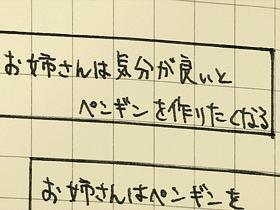 お姉さんは気分が良いと
ペンギンを作りたくなる
お姉さんはペンギンを